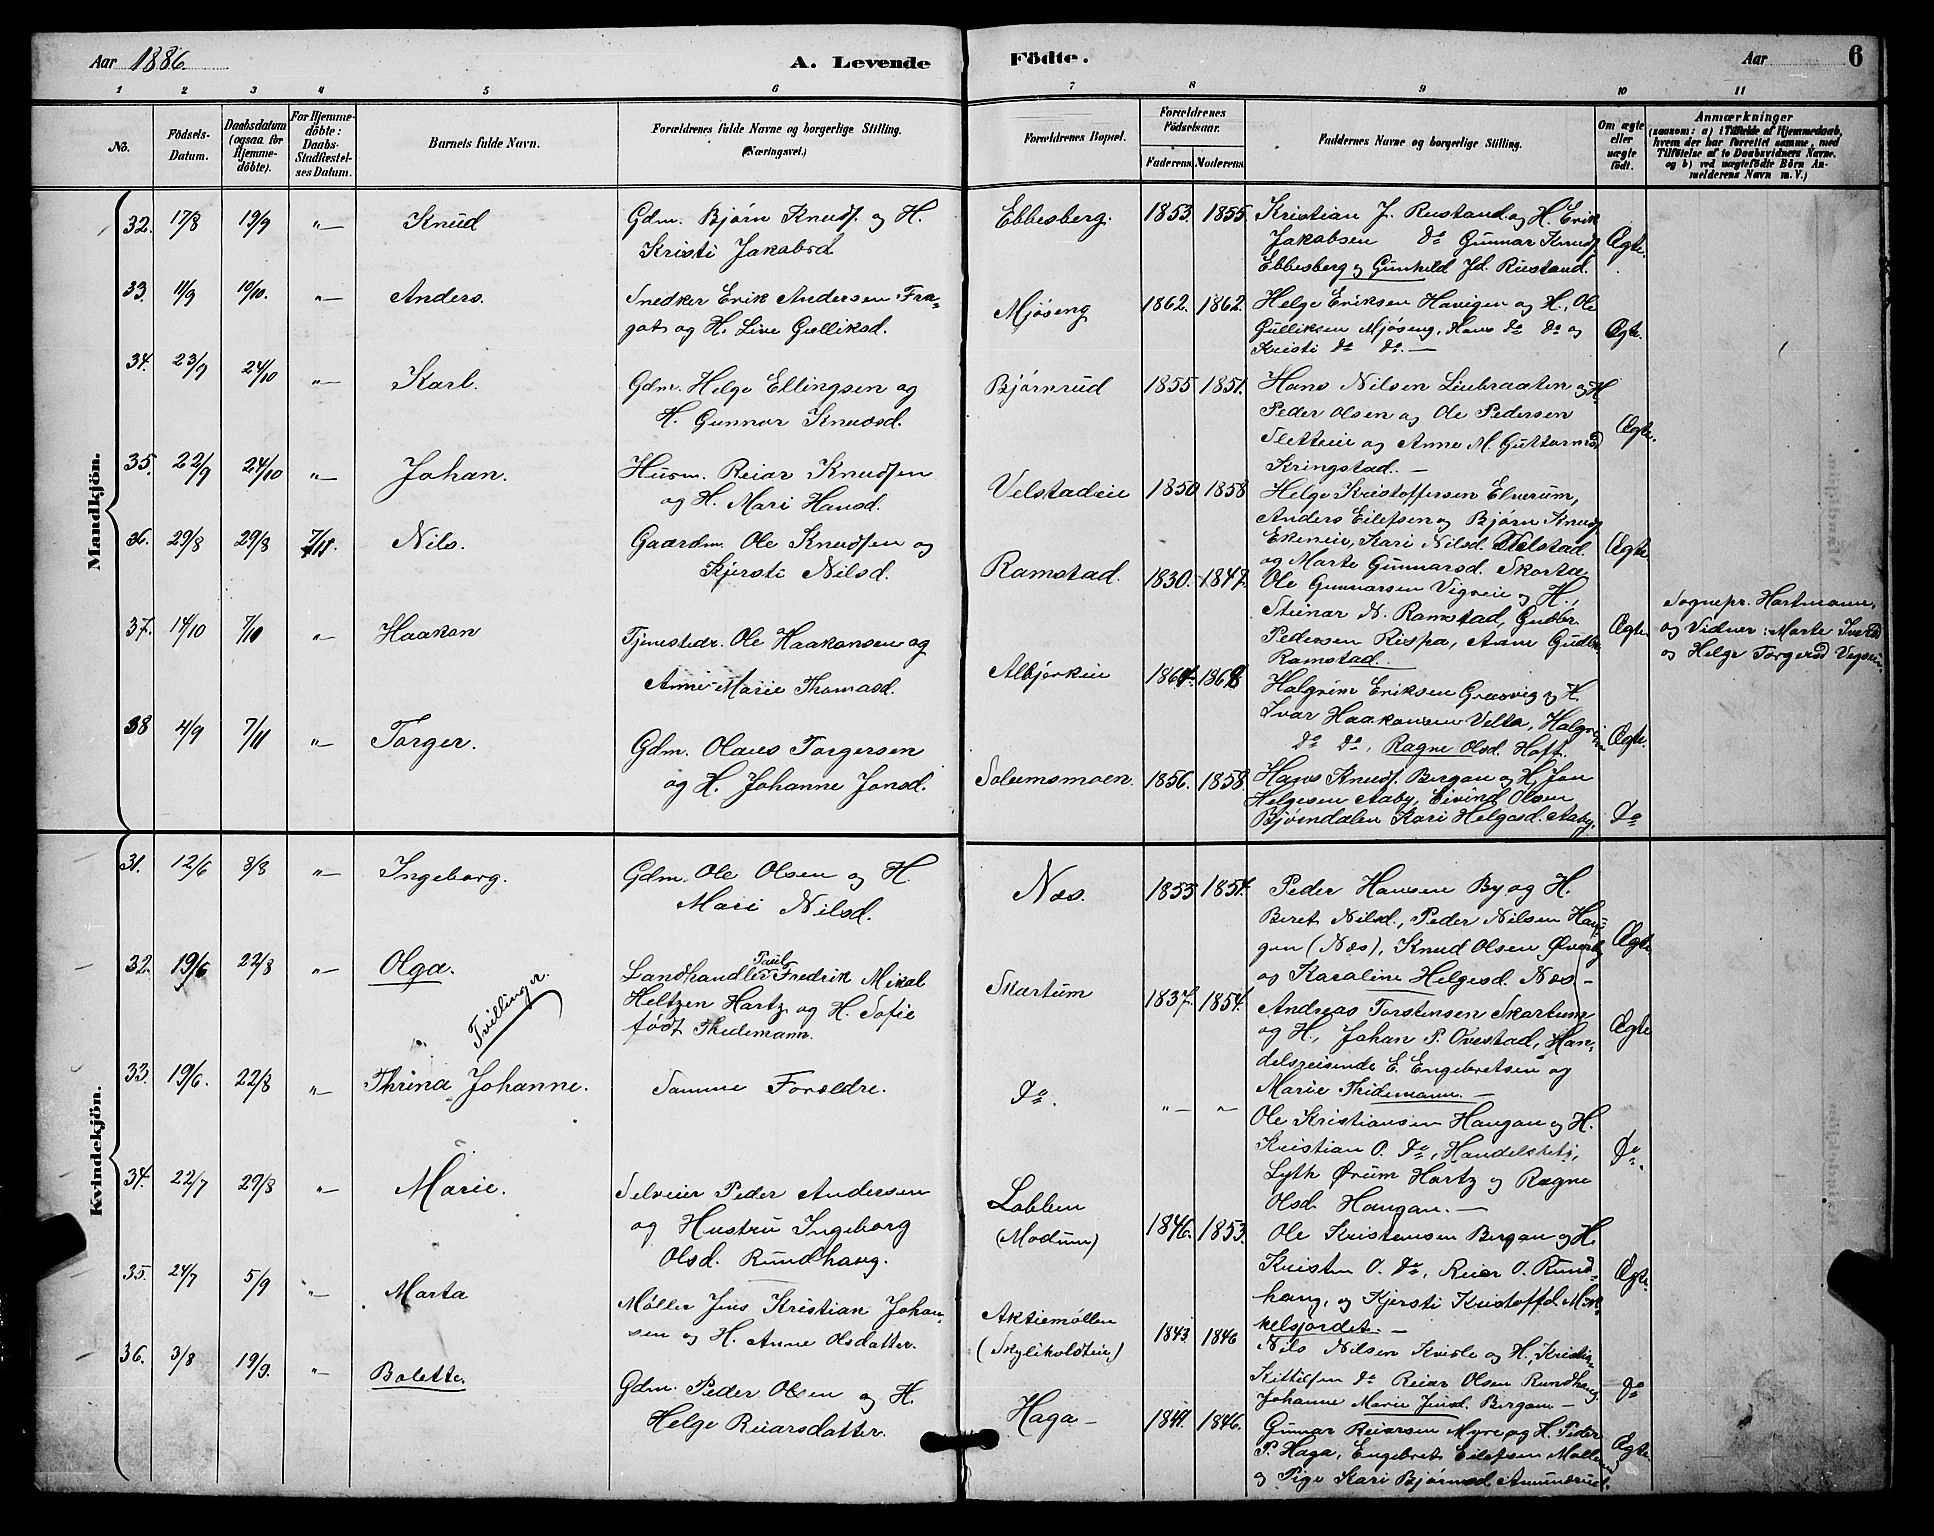 Aar 1886. A. Levende Födte. Aar 6
1 2 3 4 5 6 7 8 9 10 11
No.
Födsels-Datum.
Daabsdatum (ogsaa for Hjemmedöbte).
For Hjemmedöbte: Daabs-Stadfæstelses Datum.
Barnets fulde Navn.
Forældrenes fulde Navne og borgerlige Stilling. (Næringsvei.)
Forældrenes Bopæl.
Forældrenes Födselsaar.
Faderens. Moderens.
Faddernes Navne og borgerlige Stilling.
Om ægte eller uægte födt.
Anmærkninger
(saasom: a) i Tilfælde af Hjemmedaab,
hvem der har forrettet samme, med
Tilföielse af to Daabsvidners Navne,
og b) ved uægtefödte Börn Anmelderens Navn m. V.)
Mandkjön.
32. 17/8 19/9 " Knud
Gdm. Bjørn Knuds. og H.
Kristi Jakobsd.
Ebbesberg. 1853. 1855.
Kristian J. Rustand og H. Erik
Jakobsen do Gunnar Knuds.
Ebbesberg og Gunhild Jd. Rustand.
Ægte.
33. 11/9 10/10. " Anders.
Snedker Erik Andersen Fra-
gat og H. Live Gulliksd.
Mjøseng 1862. 1862.
Helge Eriksen Havigen og H., Ole
Gulliksen Mjøseng, Hans do do og
Kristi do do. —
Ægte.
34. 23/9 24/10 " Karl.
Gdm. Helge Ellingsen og
H. Gunnor Knudsd.
Bjørnrud 1855. 1851.
Hans Nilsen Liubraaten og H.
Peder Olsen og Ole Pedersen
Sletteie og Anne M. Guttormsd
Kringstad. —
Ægte.
35. 22/9 24/10 " Johan.
Husm. Reiar Knudsen
og H. Mari Hansd.
Velstadeie 1850 1858
Helge Kristoffersen Elverum,
Anders Eilefsen og Bjørn Knuds.
Ekeneie, Kari Nilsd. Velstad
og Marte Gunnarsd. Skorta
Ægte
36. 29/8 29/8 7/11. Nils.
Gaardm. Ole Knudsen og
Kjersti Nilsd.
Ramstad. 1830. 1847.
Ole Gunnarsen Vigseie og H.,
Steinar N. Ramstad, Gudbr.
Pedersen Rispa, Anne Gudbr.
Ramstad.
Ægte
Sognepr. Hartmann,
og Vidner: Marte Iversd
og Helge Torgersd Vegseie
37. 14/10 7/11 " Haakon
Tjenestedr. Ole Haakonsen og
Anne Marie Thomasd.
Albjerkeie 1864. 1868
Halgrim Eriksen Græsvig og H.
Ivar Haakonsen Velta, Halgrim
do do, Ragne Olsd. Hoff.
Ægte.
38 4/9 7/11 " Torger.
Gdm. Olaus Torgersen
og H. Johanne Jonsd.
Solumsmoen. 1856. 1858
Hans Knuds. Bergan og H, Jon
Helgesen Aaby, Eivind Olsen
Bjørndalen Kari Helgesd. Aaby.
do
Kvindekjön.
31. 12/6 8/8 " Ingeborg.
Gdm. Ole Olsen og H.
Mari Nilsd.
Næs. 1855 1854.
Peder Hansen By og H.
Beret Nilsd., Peder Nilsen Hau-
gen (Næs), Knud Olsen Øverby
og Karoline Helgesd. Næs —
Ægte
32. 19/6 22/8 " Olga.
Tvillinger.
Landhandler Poul Fredrik Mikal
Heltzen Hartz og H. Sofie
født Thidemann.
Skartum 1837. 1854.
Andreas Torstensen Skartum
og H., Johan P. Ovestad, Han-
delsreisende E. Engebretsen og
Marie Thidemann. —
Ægte
33. 19/6. 22/8 " Thrina Johanne.
Samme Forældre.
do. " "
Ole Kristiansen Haugan og H.
Kristian O. do, Handelsbetj.
Lyth Ørum Hartz og Ragne
Olsd. Haugan. —
do.
34. 22/7 29/8 " Marie.
Selveier Peder Andersen
og Hustru Ingeborg
Olsd. Rundhaug.
Lobben
(Modum) 1846. 1853.
Ole Kristensen Bergan og H.
Kristen O. do, Reier O. Rund-
haug, og Kjersti Kristoffd. Mik-
kelsjordet. —
Ægte
35. 24/7 5/9 " Marta
Møller Jens Kristian Johan-
sen og H. Anne Olsdatter.
Aktiemøllen
(Skylikoldteie) 1843 1846
Nils Nilsen Kvisle og H., Kristian
Kittilsen do Reiar Olsen Rundhaug
Johanne Marie Jensd. Bergan. —
do
36. 3/8 19/9. " Bolette.
Gdm. Peder Olsen og H.
Helge Reiarsdatter.
Haga — 1849. 1846.
Gunnar Reiarsen Myre og H. Peder
P. Haga, Engebret Eilefsen Mollerud
og Pige Kari Bjørnsd. Amundrud.
Ægte